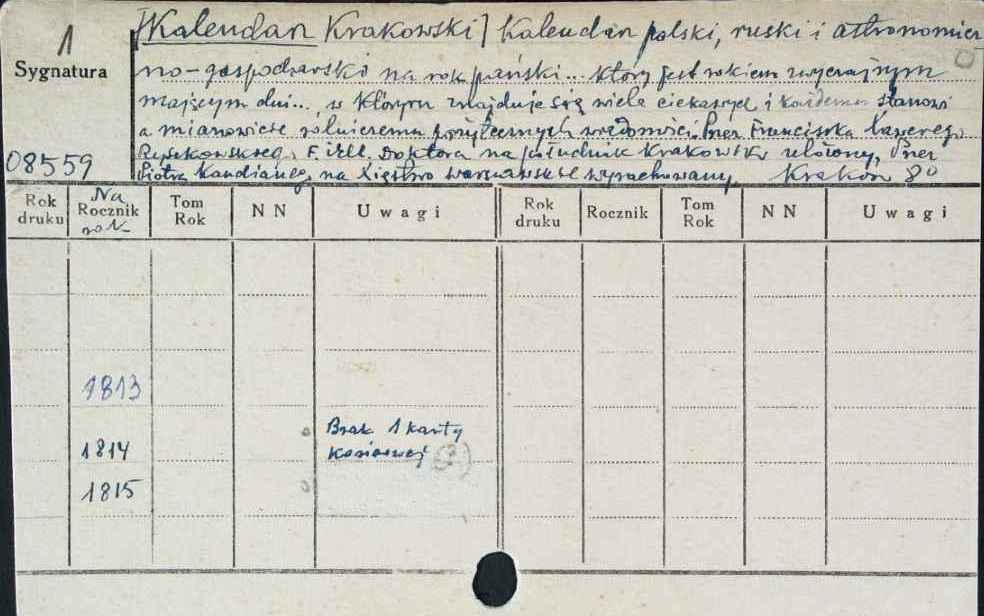 1
[Kalendarz Krakowski] Kalendarz polski, ruski i astronomicz
Sygnatura
no-gospodarski na rok pański... który jest rokiem zwyczajnym
mającym dni... w którym znajduje się wiele ciekawych i każdemu stanowi
a mianowicie rolniczemu pożytecznych wiadomości. Przez Franciszka Xawerego
08559
F. i Doktora na południk Krakowski ułożony, Przez
Piotra na Xięstwo Warszawskie wyrachowany. Kraków 8°
Rok druku
Na Rocznik rok
Tom Rok
NN
Uwagi
Rok druku
Rocznik
Tom Rok
NN
Uwagi
1813
Brak 1 karty
1814
końcowej
1815